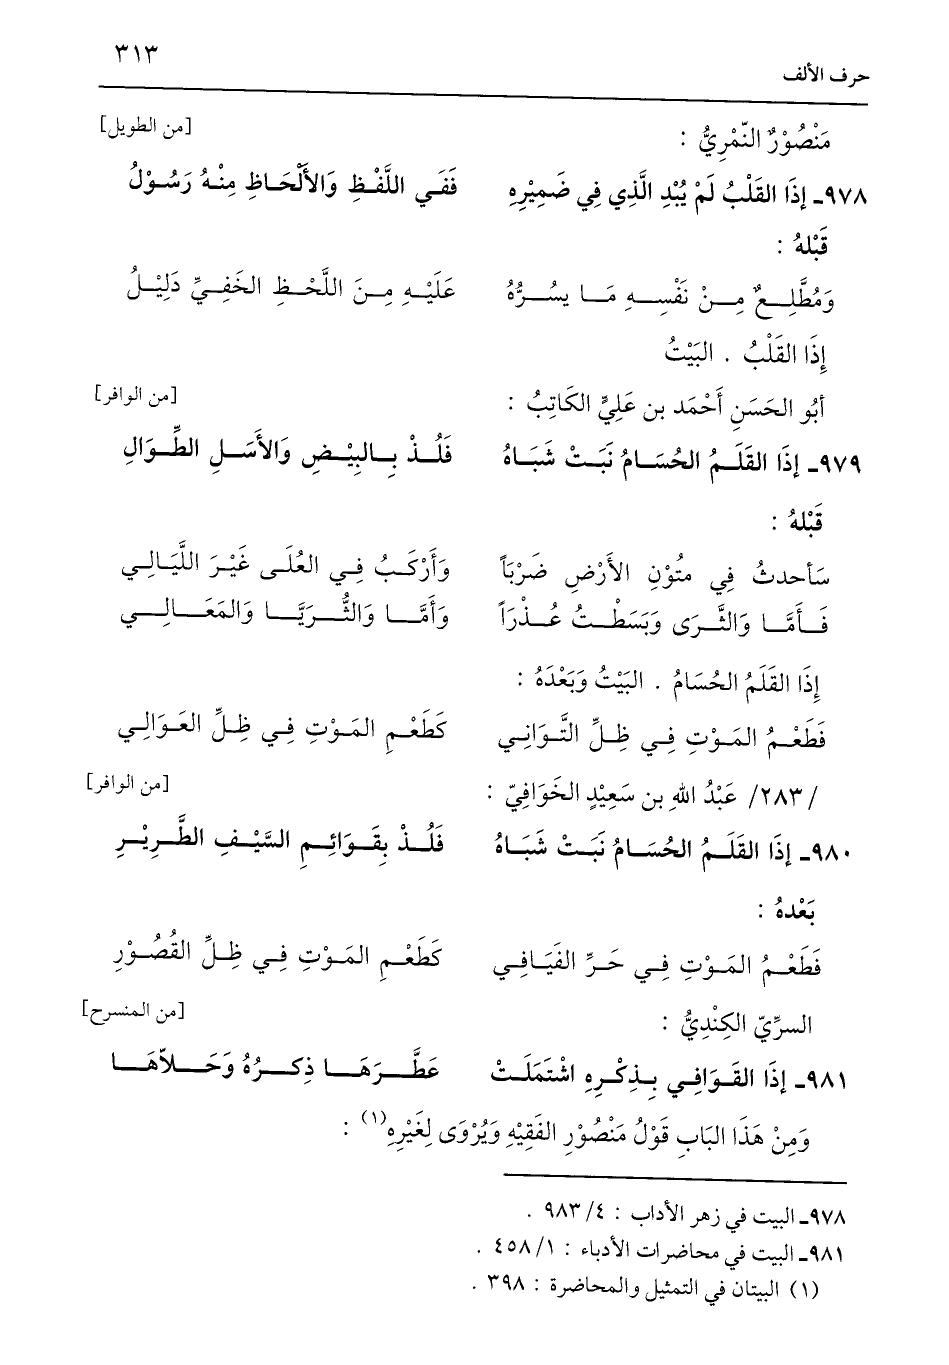 حرف الألف ٣١٣
مَنْصُوْرٌ النَّمْرِيُّ : [من الطويل]
٩٧٨ـ إِذَا القَلْبُ لَمْ يُبْدِ الَّذِي فِي ضَمِيْرِهِ فَفَي اللَّفْظِ وَالأَلْحَاظِ مِنْهُ رَسُوْلُ
قَبْلهُ :
وَمُطَّلِعٌ مِنْ نَفْسِهِ مَا يسُرُّهُ عَلَيْهِ مِنَ اللَّحْظِ الخَفِيِّ دَلِيْلُ
إِذَا القَلْبُ . البَيْتُ
أَبُو الحَسَنِ أَحْمَد بن عَلِيٍّ الكَاتِبُ : [من الوافر]
٩٧٩ـ إِذَا القَلَمُ الحُسَامُ نَبَتْ شَبَاهُ فَلُذْ بِالبِيْضِ وَالأَسَلِ الطِّوَالِ
قَبْلهُ :
سَأحدثُ فِي متُوْنِ الأَرْضِ ضَرْبَاً وَأَرْكَبُ فِي العُلَى غَيْرَ اللَّيَالِي
فَأَمَّا وَالثَّرَى وَبَسَطْتُ عُذْرَاً وَأَمَّا وَالثُّرَيَّا وَالمَعَالِي
إِذَا القَلَمُ الحُسَامُ . البَيْتُ وَبَعْدَهُ :
فَطَعْمُ المَوْتِ فِي ظِلِّ التَّوَانِي كَطَعْمِ المَوْتِ فِي ظِلِّ العَوَالِي
/٢٨٣/ عَبْدُ اللهِ بن سَعِيْدٍ الخَوَافِيّ : [من الوافر]
٩٨٠ـ إِذَا القَلَمُ الحُسَامُ نَبَتْ شَبَاهُ فَلُذْ بِقَوَائِمِ السَّيْفِ الطَّرِيْرِ
بَعْدهُ :
فَطَعْمُ المَوْتِ فِي حَرِّ الفَيَافِي كَطَعْمِ المَوْتِ فِي ظِلِّ القُصُوْرِ
السرِّيّ الكِنْدِيُّ : [من المنسرح]
٩٨١ـ إِذَا القَوَافِي بِذِكْرِهِ اشْتَمَلَتْ عَطَّرَهَا ذِكرُهُ وَحَلاّهَا
وَمِنْ هَذَا البَابِ قَوْلُ مَنْصُوْرِ الفَقِيْهِ وَيُرْوَى لِغَيْرِهِ(١) :
٩٧٨ـ البيت في زهر الأداب : ٤/ ٩٨٣ .
٩٨١ـ البيت في محاضرات الأدباء : ١/ ٤٥٨ .
(١) البيتان في التمثيل والمحاضرة : ٣٩٨ .